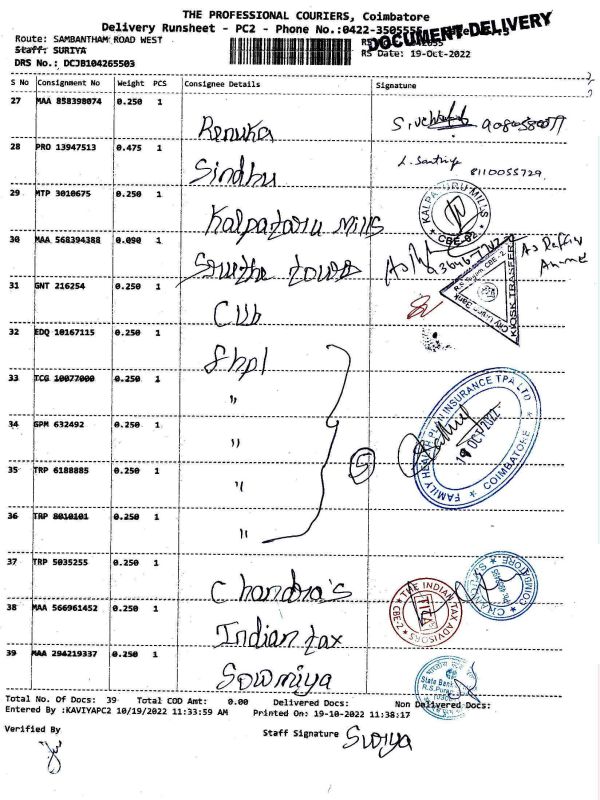 THE PROFESSIONAL COURIERS, Coimbatore
Delivery Runsheet - PC2 - Phone No.:0422-3505555
DOCUMENT DELIVERY
Route: SAMBANTHAM ROAD WEST
Staff: SURIYA
RS Date: 19-Oct-2022
DRS No.: DCJB104265503
S No Consignment No Weight PCS Consignee Details Signature
27 MAA 858398074 0.250 1 Renuka
28 PRO 13947513 0.475 1 Sindhu 8110055729
29 MTP 3010675 0.250 1 Kalpataru Mills KALPATARU MILLS CBE-02
30 MAA 568394388 0.090 1
31 GNT 216254 0.250 1 CUB KIOSK TRASFER
32 EDQ 10167115 0.250 1 fhpl
33 TCG 10077000 0.250 1 "
34 GPM 632492 0.250 1 " 5 FAMILY HEALTH PLAN INSURANCE TPA LTD COIMBATORE 19 OCT 2022
35 TRP 6188885 0.250 1 "
36 TRP 8010101 0.250 1 "
37 TRP 5035255 0.250 1 Chandra's COIMBATORE
38 MAA 566961452 0.250 1 Indian tax THE INDIAN TAX ADVISORS CBE-2 TITA
39 MAA 294219337 0.250 1 Sowmiya State Bank R.S.Puram
Total No. Of Docs: 39 Total COD Amt: 0.00 Delivered Docs: Non Delivered Docs:
Entered By :KAVIYAPC2 10/19/2022 11:33:59 AM Printed On: 19-10-2022 11:38:17
Verified By Staff Signature Suriya